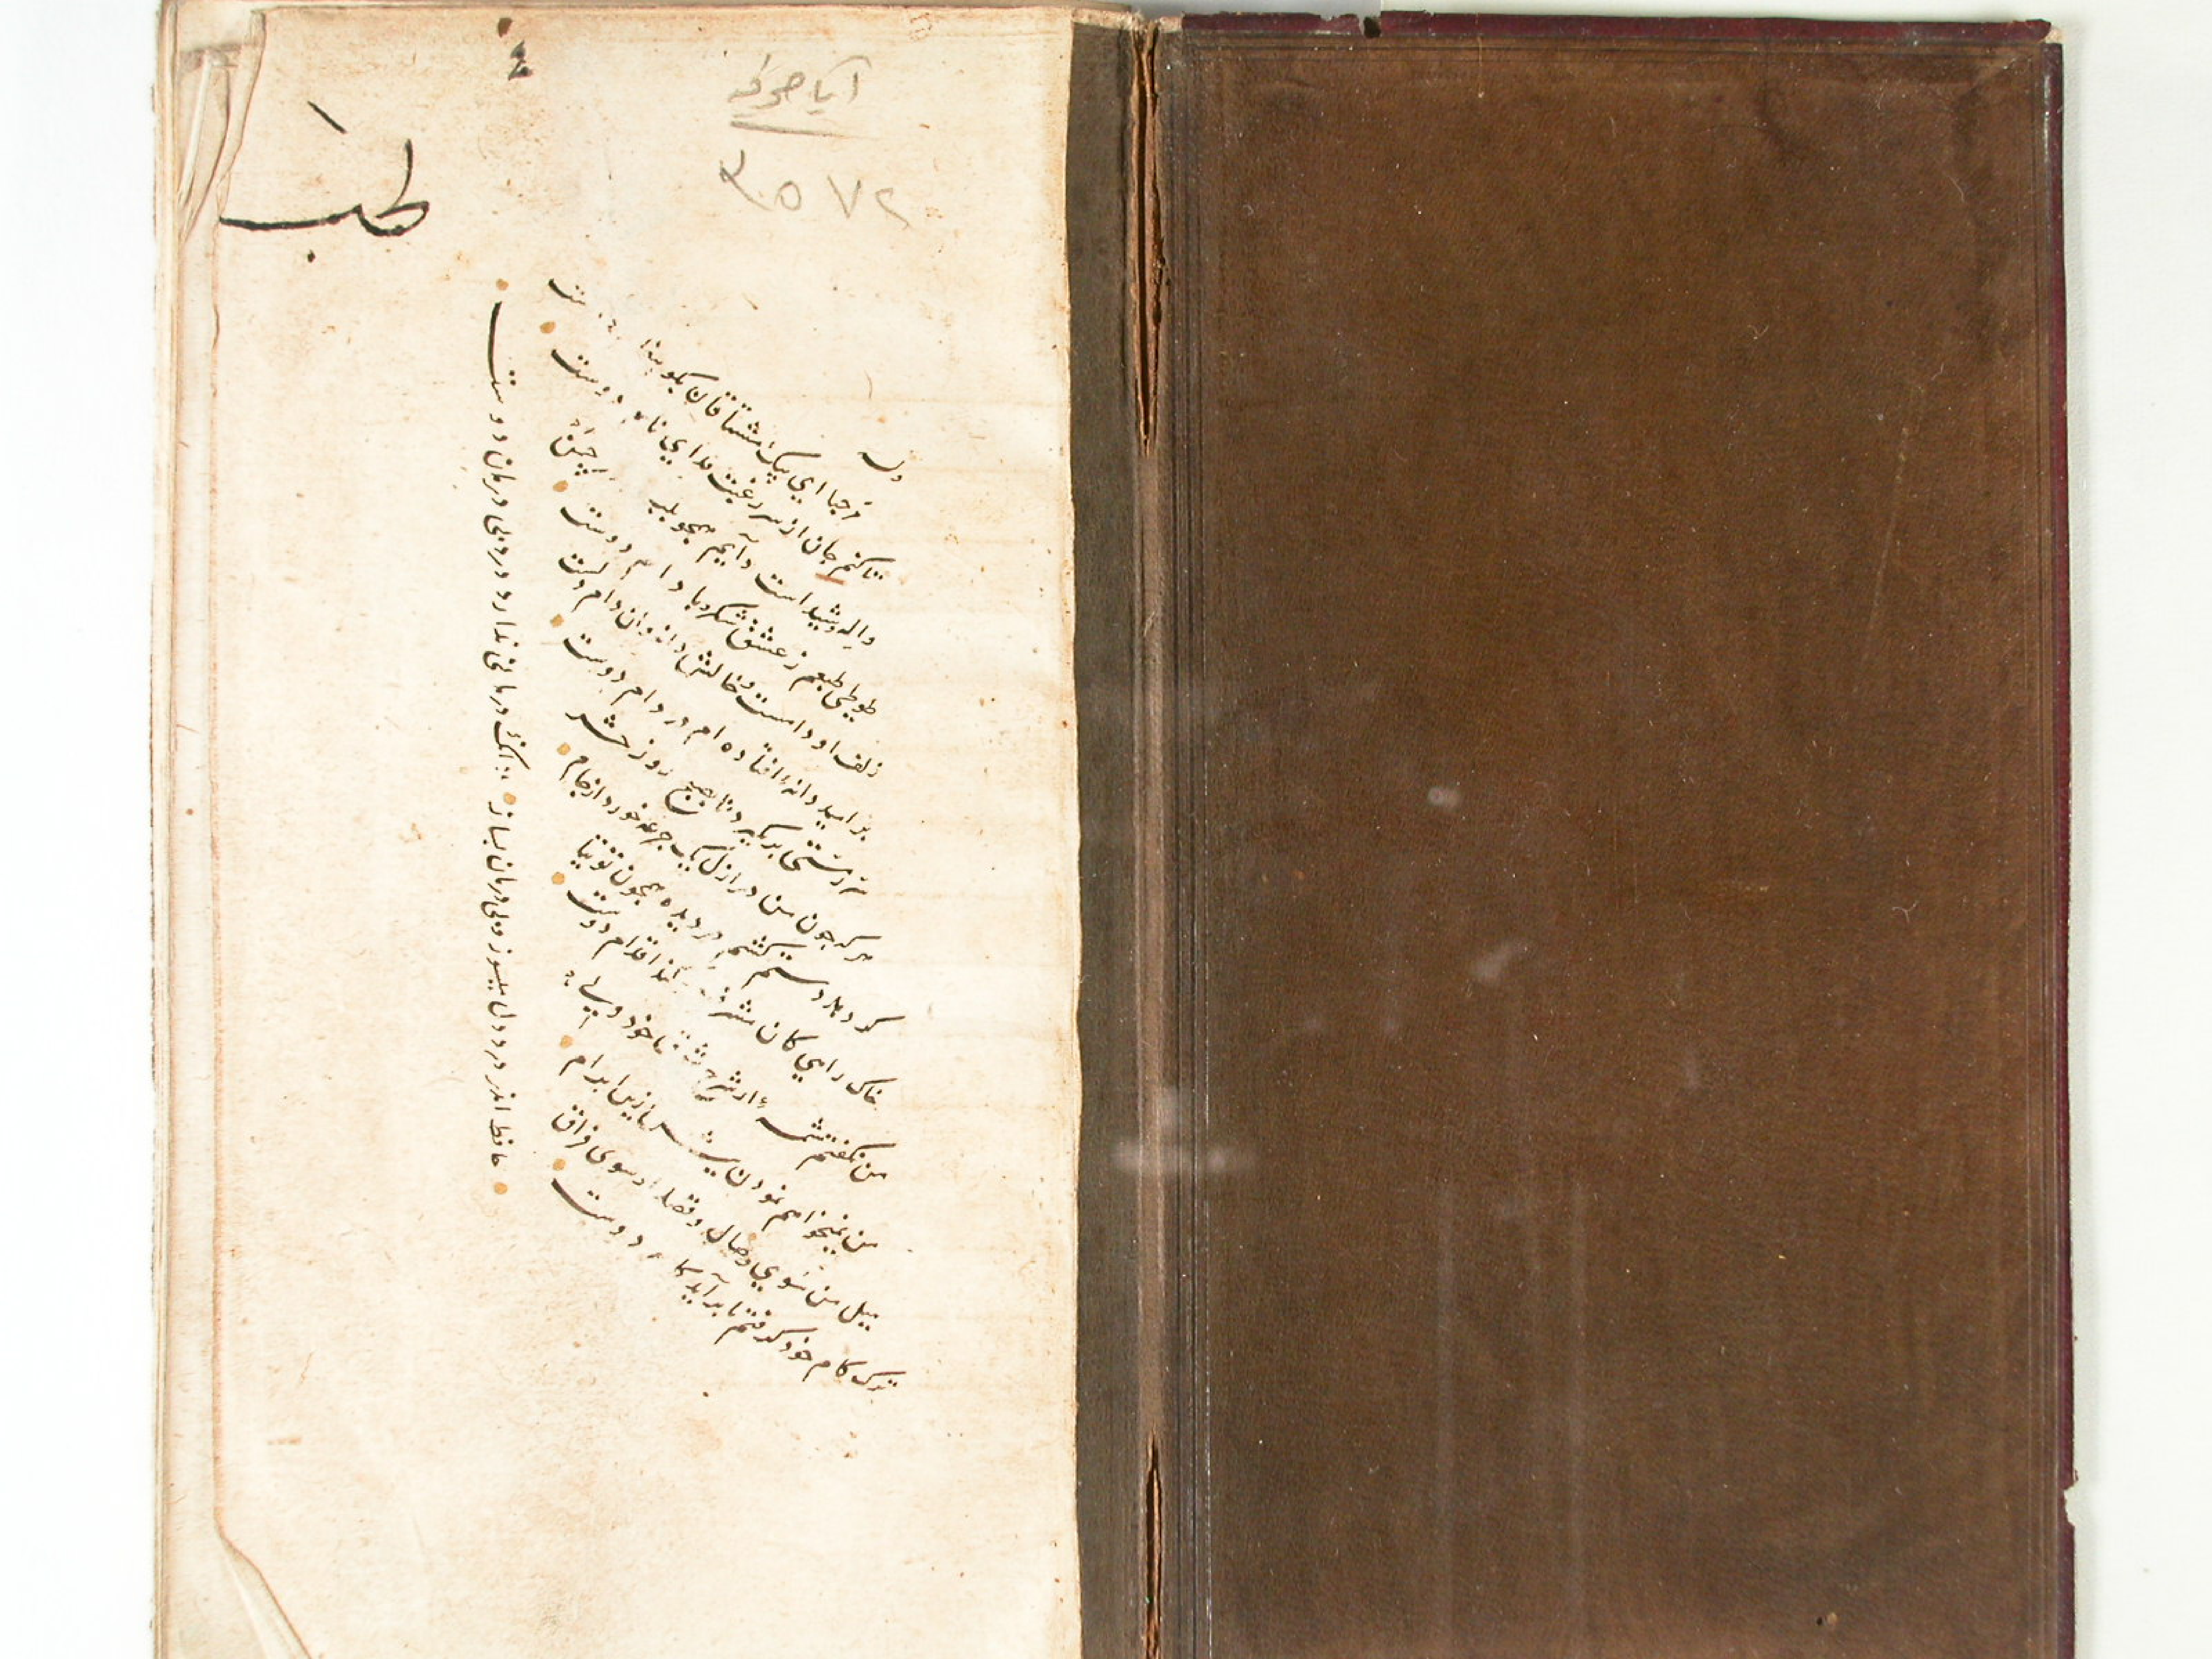 آیا صوفیه
٣٥٧٢
طب
وله
مرحبا ای پیک مشتاقان بکو پیغام دوست
تا کنم جان از سر رغبت فدای نام دوست
واله و شیداست دایم همچو بلبل در قفس
طوطی طبعم ز عشق شکر و بادام دوست
زلف او دامست و خالش دانه و ان دام دوست
بر امید دانه افتاده ام در دام دوست
سر ز مستی بر نکیرد تا بصبح روز حشر
هر که چون من در ازل یک جرعه خورد از جام
کر دهد دستم کشم در دیده همچون توتیا
خاک راهی کان مشرف کردد از اقدام دوست
من نکفتم شمه از شرح شوق خود ولی
من نمیخواهم نمودن بیش ازین ابرام
میل من سوی وصال و قصد او سوی فراق
ترک کام خود کرفتم تا برآید کام دوست
حافظ اندر درد دل میسوز و بی درمان بساز زانک درمانی ندارد درد بی درمان دوست